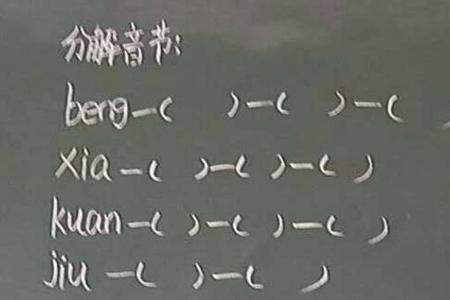 分解音节:
beng—(  )—(  )—(
xia—(  )—(  )—(  )
kuan—(  )—(  )—(  )
jiu—(  )—(  )